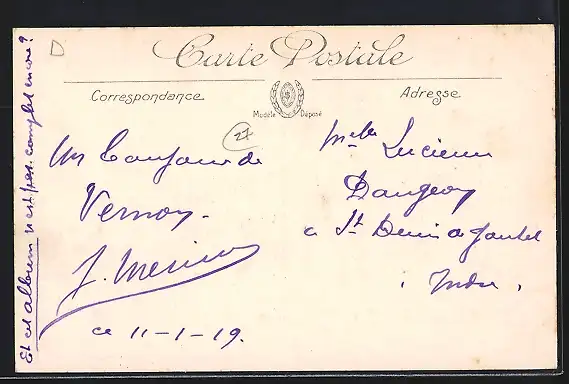 Carte Postale
Correspondance
Adresse
Modèle Déposé
27
D
Un Bonjour de
Vernoy-
ce 11-1-19.
Melle Lucienne
Dangeoy
a St Denis de Jouhet
Indre
Et cet album n'est pas complet encore?